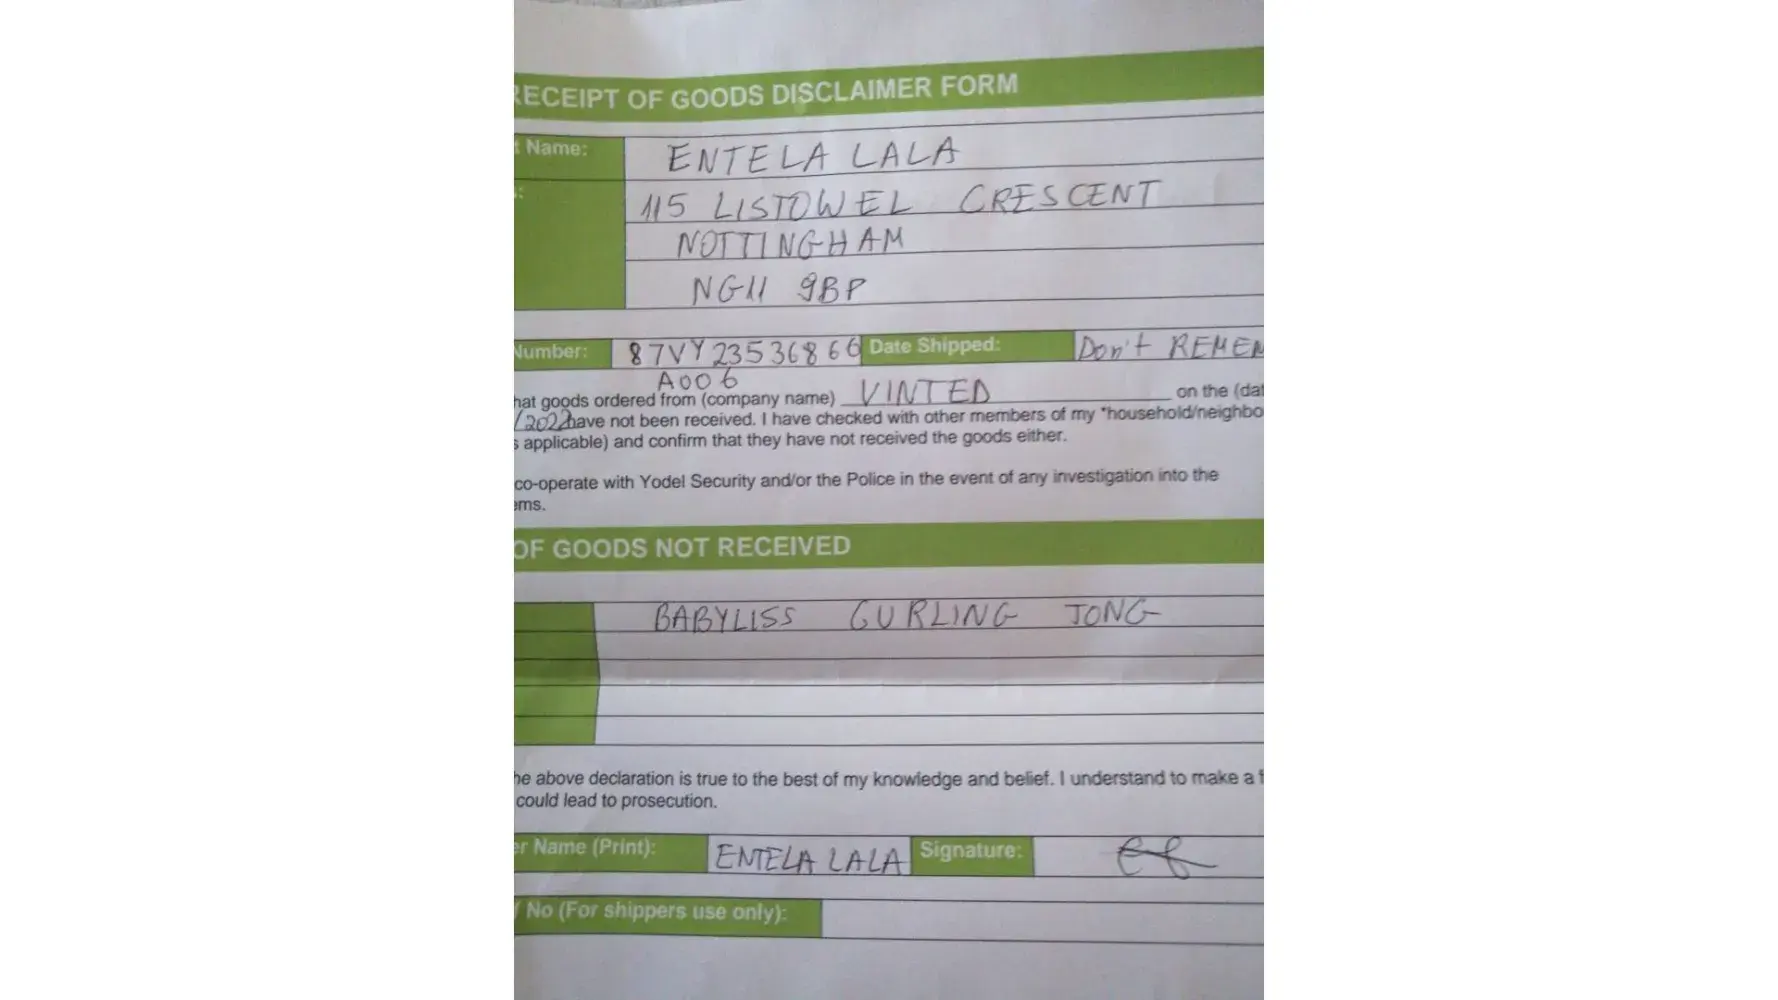 RECEIPT OF GOODS DISCLAIMER FORM
t Name: ENTELA LALA
s: 115 LISTOWEL CRESCENT
NOTTINGHAM
NG11 9BP
Number: 87VY23536866 Date Shipped: Don't REMEM
A006
hat goods ordered from (company name) VINTED on the (dat
/2022 have not been received. I have checked with other members of my *household/neighbo
s applicable) and confirm that they have not received the goods either.
co-operate with Yodel Security and/or the Police in the event of any investigation into the
ems.
OF GOODS NOT RECEIVED
BABYLISS CURLING TONG
he above declaration is true to the best of my knowledge and belief. I understand to make a f
could lead to prosecution.
er Name (Print): ENTELA LALA Signature:
/ No (For shippers use only):